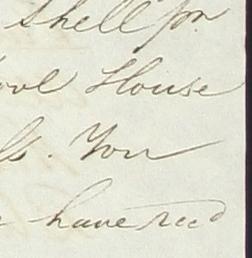 Shell for
House
. You
have recd